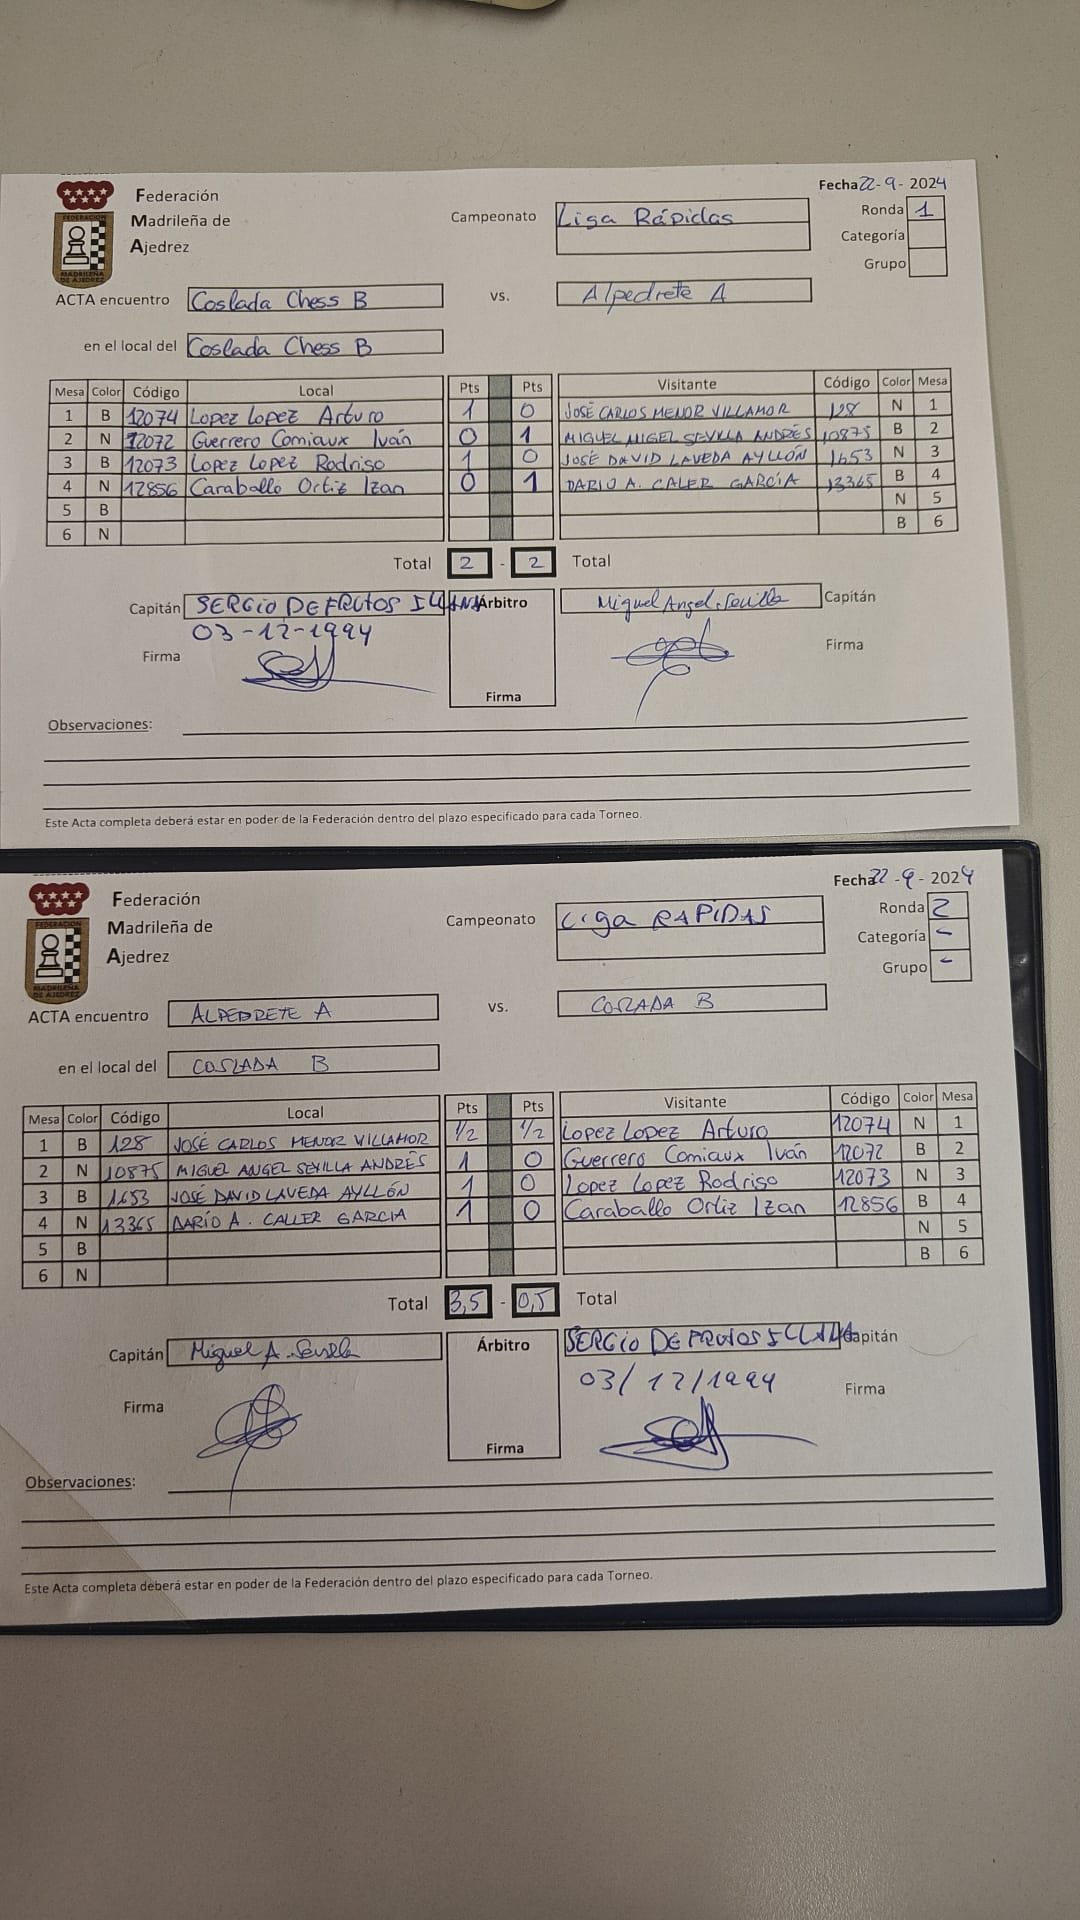 Federación
Madrileña de
Ajedrez
FEDERACION
MADRILEÑA
DE AJEDREZ
Fecha 22-9-2024
Campeonato Liga Rápidas
Ronda 1
Categoría
Grupo
ACTA encuentro Coslada Chess B vs. Alpedrete A
en el local del Coslada Chess B
Mesa Color Código Local Pts Pts Visitante Código Color Mesa
1 B 12074 Lopez Lopez Arturo 1 0 JOSÉ CARLOS MENOR VILLAMOR 128 N 1
2 N 12072 Guerrero Comiaux Iván 0 1 MIGUEL ANGEL SEVILLA ANDRÉS 10875 B 2
3 B 12073 Lopez Lopez Rodrigo 1 0 JOSÉ DAVID LAVEDA AYLLÓN 1653 N 3
4 N 12856 Caraballo Ortiz Izan 0 1 DARIO A. CALER GARCÍA 13365 B 4
5 B N 5
6 N B 6
Total 2 - 2 Total
Capitán SERGIO DE FRUTOS ILLANA Árbitro Miguel Angel Sevilla Capitán
03-12-1994
Firma Firma
Firma
Observaciones:
Este Acta completa deberá estar en poder de la Federación dentro del plazo especificado para cada Torneo.
Federación
Madrileña de
Ajedrez
FEDERACION
MADRILEÑA
DE AJEDREZ
Fecha 22-9-2024
Campeonato Liga RAPIDAS
Ronda 2
Categoría -
Grupo -
ACTA encuentro ALPEDRETE A vs. COSLADA B
en el local del COSLADA B
Mesa Color Código Local Pts Pts Visitante Código Color Mesa
1 B 128 JOSÉ CARLOS MENOR VILLAMOR 1/2 1/2 Lopez Lopez Arturo 12074 N 1
2 N 10875 MIGUEL ANGEL SEVILLA ANDRÉS 1 0 Guerrero Comiaux Iván 12072 B 2
3 B 1653 JOSÉ DAVID LAVEDA AYLLÓN 1 0 Lopez Lopez Rodrigo 12073 N 3
4 N 13365 DARÍO A. CALLER GARCIA 1 0 Caraballo Ortiz Izan 12856 B 4
5 B N 5
6 N B 6
Total 3,5 - 0,5 Total
Capitán Miguel A. Sevilla Árbitro SERGIO DE FRUTOS ILLANA Capitán
03/12/1994
Firma Firma
Firma
Observaciones:
Este Acta completa deberá estar en poder de la Federación dentro del plazo especificado para cada Torneo.